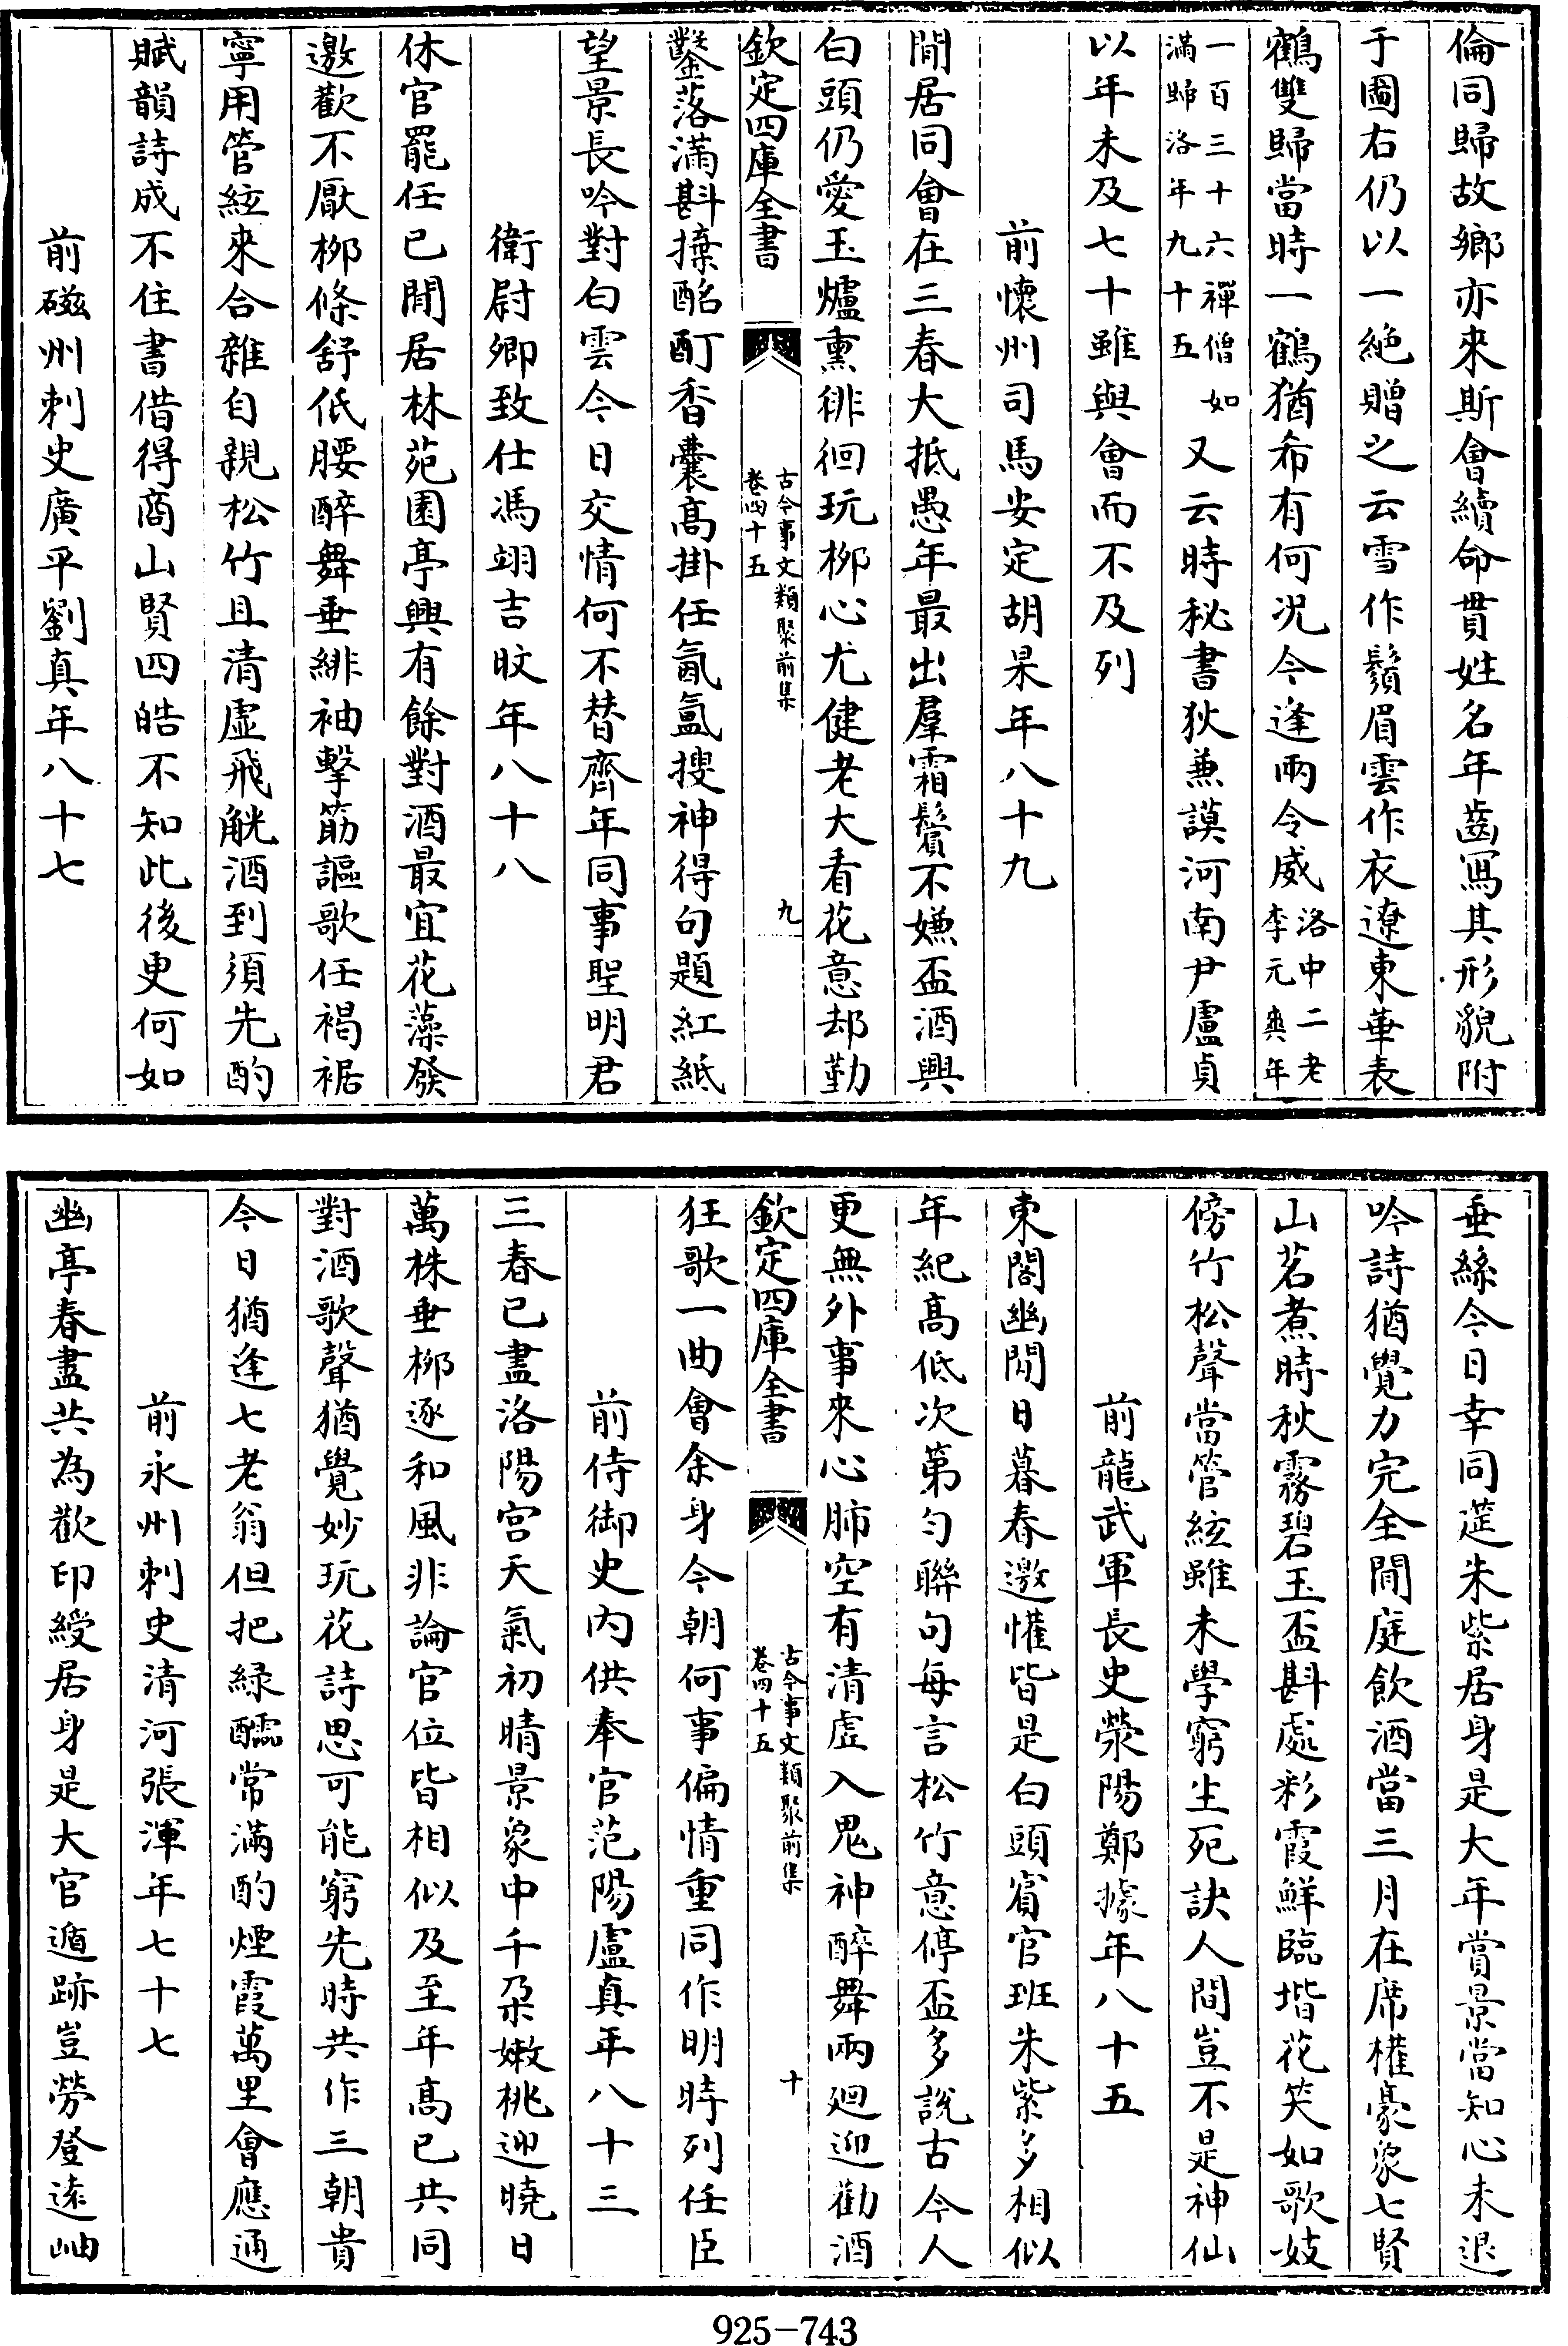 倫同歸故鄉亦來斯會續命貫姓名年齒寫其形貌附
于圖右仍以一絶贈之云雪作鬚眉雲作衣遼東華表
鶴雙歸當時一鶴猶希有何况今逢兩令威洛中二老李元爽年
一百三十六禪僧如滿歸洛年九十五又云時秘書狄兼謨河南尹盧貞
以年未及七十雖與會而不及列
前懷州司馬安定胡杲年八十九
閒居同會在三春大抵愚年最出羣霜鬢不嫌盃酒興
白頭仍愛玉爐熏徘徊玩柳心尤健老大看花意却勤
欽定四庫全書
古今事文類聚前集
卷四十五
九
鑿落滿斟擡酩酊香囊高掛任氤氳搜神得句題紅紙
望景長吟對白雲今日交情何不替齊年同事聖明君
衛尉卿致仕馮翊吉旼年八十八
休官罷任已閒居林苑園亭興有餘對酒最宜花藻發
邀歡不厭柳條舒低腰醉舞垂緋袖擊筯謳歌任褐裾
寧用管絃來合雜自親松竹且清虛飛觥酒到須先酌
賦韻詩成不住書借得商山賢四皓不知此後更何如
前磁州刺史廣平劉真年八十七
垂絲今日幸同筵朱紫居身是大年賞景當知心未退
吟詩猶覺力完全閒庭飲酒當三月在席權豪象七賢
山茗煮時秋霧碧玉盃斟處彩霞鮮臨堦花笑如歌妓
傍竹松聲當管絃雖未學窮生死訣人間豈不是神仙
前龍武軍長史滎陽鄭據年八十五
東閣幽閒日暮春邀懽皆是白頭賓官班朱紫多相似
年紀高低次第勻聯句每言松竹意停盃多說古今人
更無外事來心肺空有清虛入鬼神醉舞兩廻迎勸酒
欽定四庫全書
古今事文類聚前集
卷四十五
十
狂歌一曲會余身今朝何事偏情重同作明時列任臣
前侍御史内供奉官范陽盧真年八十三
三春已盡洛陽宫天氣初晴景象中千朶嫩桃迎曉日
萬株垂柳逐和風非論官位皆相似及至年高已共同
對酒歌聲猶覺妙玩花詩思可能窮先時共作三朝貴
今日猶逢七老翁但把緑醽常滿酌煙霞萬里會應通
前永州刺史清河張渾年七十七
幽亭春盡共為歡印綬居身是大官遁跡豈勞登逺岫
925-743